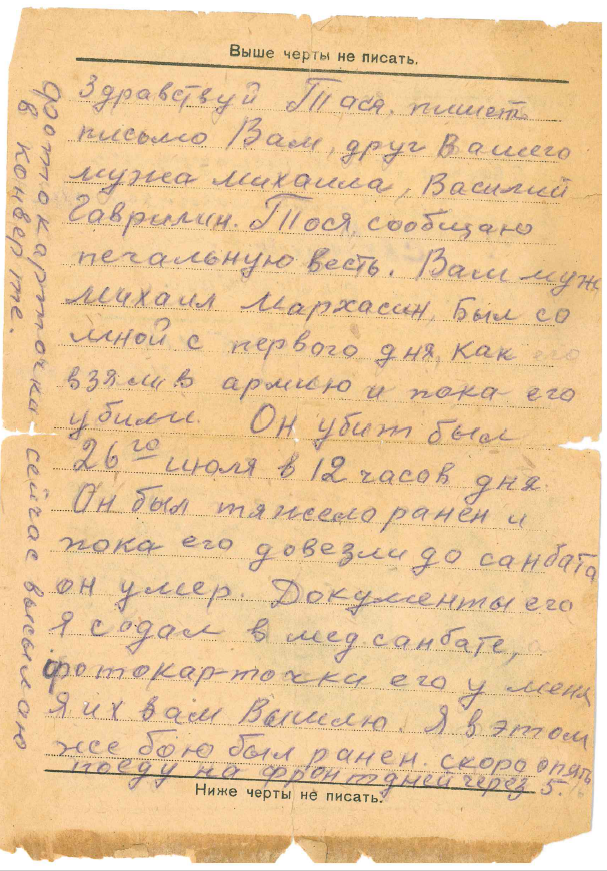 Выше черты не писать.
Здравствуй Тася. пишет
письмо Вам, друг Вашего
мужа михаила, Василий
Гаврилин. Тося, сообщаю
печальную весть. Вам муж
михаил Мархасин, был со
мной с первого дня, как его
взяли в армию и пока его
убили. Он убит был
26го июля в 12 часов дня.
Он был тяжело ранен и
пока его довезли до санбата
он умер. Документы его
я сдал в медсанбате,
фотокарточки его у меня
я их вам Вышлю. Я в этом
же бою был ранен. скоро опять
поеду на фронт дней через 5.
Ниже черты не писать.
фотокарточка сейчас высылаю
в конверте.